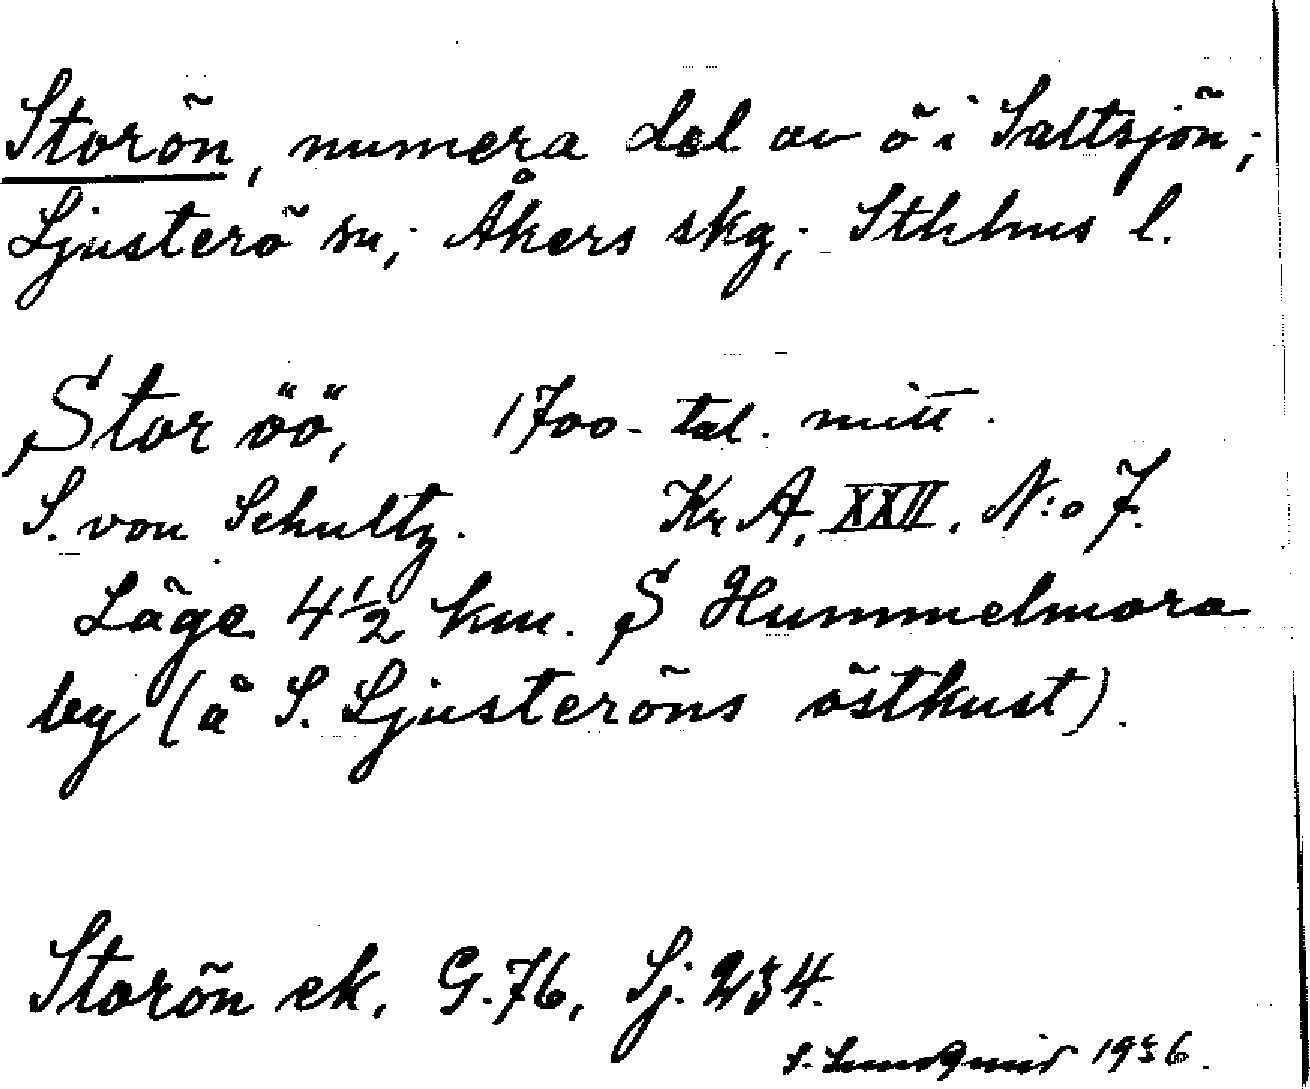 Storön, numera del av ö i Saltsjön;
Ljusterö sn; Åkers skg; Sthlms l.
Stor öö, 1700-tal. mitt.
S. von Schultz. Kr A, XXII. N:o 7.
Läge 4½ km. S Hummelmora
by (å S. Ljusteröns östkust).
Storön ek. G. 76, Sj. 234.
S. Lundqvist 1936.